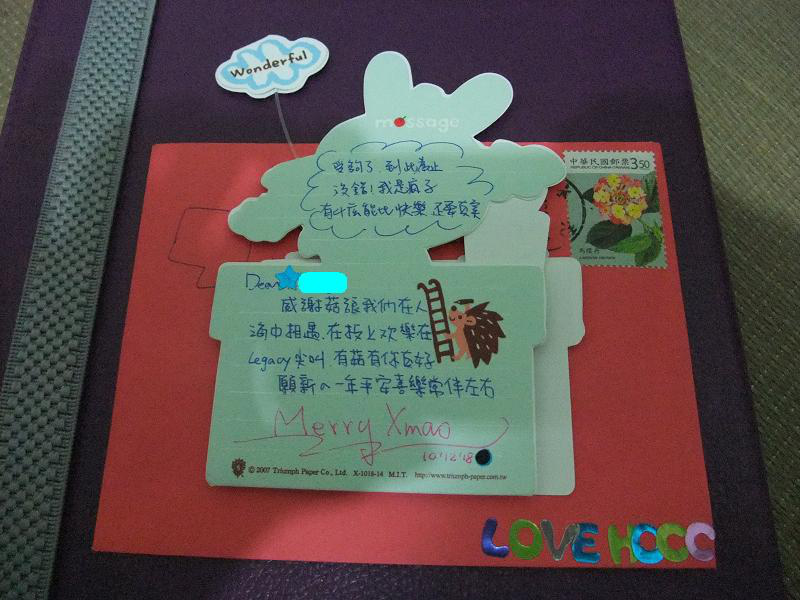 Wonderful
message
中華民國郵票 3.50
REPUBLIC OF CHINA (TAIWAN)
受夠了.到此為止
沒錯!我是瘋子
有什么能比快樂還要真實
馬纓丹
Dear
感謝菇讓我們在人
海中相遇.在板上欢樂在
Legacy尖叫.有菇有你真好
願新の一年平安喜樂常伴左右
Merry Xmas
10.12.18
© 2007 Triumph Paper Co., Ltd. X-1018-14 M.I.T. http://www.triumph-paper.com.tw
LOVE HOCC